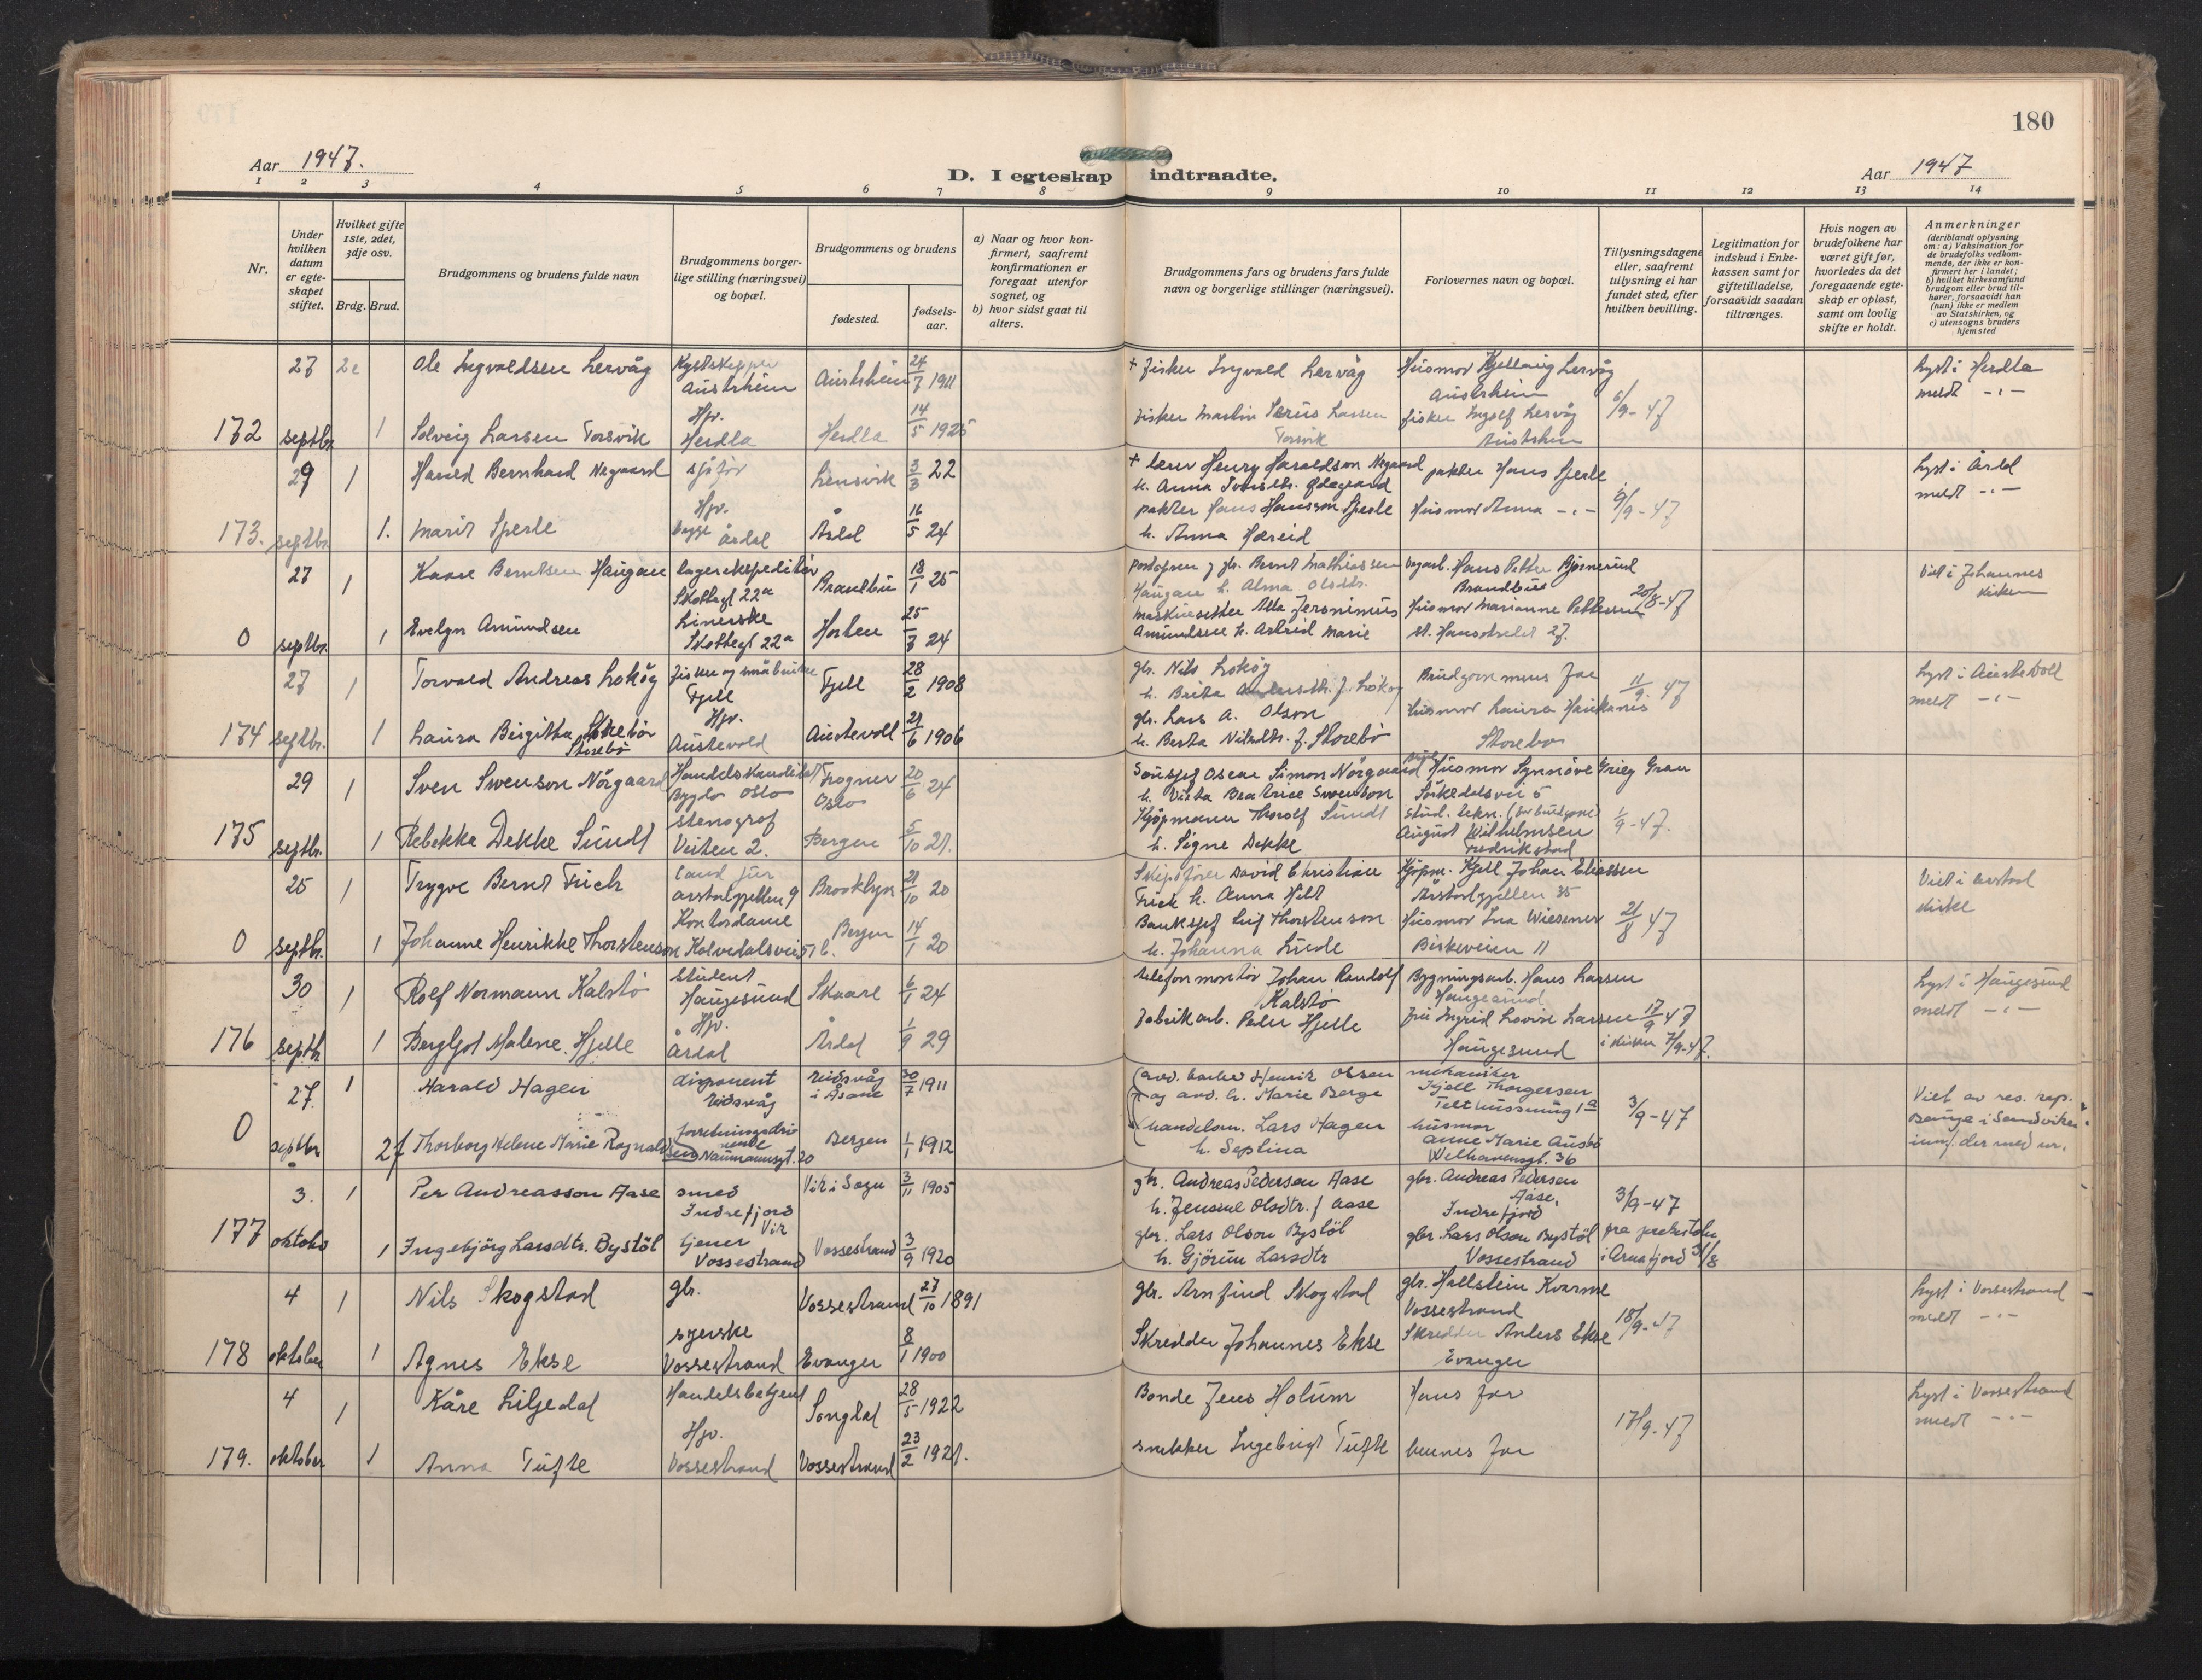 180
Aar 1947.
D. I egteskap indtraadte.
Aar 1947
1 2 3 4 5 6 7 8 9 10 11 12 13 14
Nr.
Under hvilken datum er egteskapet stiftet.
Hvilket gifte 1ste, 2det, 3dje osv.
Brdg. Brud.
Brudgommens og brudens fulde navn
Brudgommens borgerlige stilling (næringsvei) og bopæl.
Brudgommens og brudens
fødested.
fødselsaar.
a) Naar og hvor konfirmert, saafremt konfirmationen er foregaat utenfor sognet, og
b) hvor sidst gaat til alters.
Brudgommens fars og brudens fars fulde navn og borgerlige stillinger (næringsvei).
Forlovernes navn og bopæl.
Tillysningsdagene eller, saafremt tillysning ei har fundet sted, efter hvilken bevilling.
Legitimation for indskud i Enkekassen samt for giftetilladelse, forsaavidt saadan tiltrænges.
Hvis nogen av brudefolkene har været gift før, hvorledes da det foregaaende egteskap er opløst, samt om lovlig skifte er holdt.
Anmerkninger
(deriblandt oplysning om: a) Vaksination for de brudefolks vedkommende, der ikke er konfirmert her i landet; b) hvilket kirkesamfund brudgom eller brud tilhører, forsaavidt han (hun) ikke er medlem av Statskirken, og c) utensogns bruders hjemsted
27 2e Ole Ingvaldsen Lervåg Kystskipper Austrheim Austrheim 24/7 1911 + Fisker Ingvald Lervåg Husmor Kjellaug Lervåg Austrheim Lyst i Herdla
172 septbr. 1 Solveig Larsen Torsvik Hjv. Herdla Herdla 14/5 1925 Fisker Martin Larsen Torsvik fisker Ingolf Lervåg Austrheim 6/9-47 meldt -"-
29 1 Harald Bernhard Negaard sjåfør Lensvik 3/3 22 + lærer Henry Haraldson Negaard h. Anna Ødegaard pakter Hans Sperle Lyst i Årdal
173. septbr. 1. Marit Sperle Hjv. begge Årdal Årdal 16/5 24 pakter Hans Hansson Sperle h. Anna Hæreid Husmor Anna -"- 9/9-47 meldt -"-
27 1 Kaare Berntsen Haugan lagerekspeditør Skottegt 22a Brandbu 18/1 25 gbr. Bernt Mathiassen Haugan h. Alma Olsdtr. Hans Petter Bjørnerud Brandbu Viet i Johannes kirken
0 septbr. 1 Evelyn Amundsen Linerske Skottegt 22a Horten 25/7 24 Maskinsetter Jeronimus Amundsen h. Astrid Marie Husmor Marianne Pettersen St. Hansstredet 27. 20/8-47
27 1 Torvald Andreas Lokøy Fisker og småbruker Fjell Fjell 28/2 1908 gbr. Nils Lokøy h. Brita Andersdtr. f. Lokøy Brudgommens far 11/9 47 Lyst i Austevoll
174 septbr. 1 Laura Birgitta Storebø Hjv. Austevold Austevoll 21/6 1906 gbr. Lars A. Olson h. Berta Nilsdtr. f. Storebø husmor Laura Haukanes Storebø meldt -"-
29 1 Sven Swenson Nörgaard Handelskandidat Bygdø Oslo Frogner Oslo 20/6 24 Oscar Simon Nörgaard h. Beatrice Swenson Husmor Synnöve Grieg Gran Sörkedalsvei 5
175 septbr. 1 Rebekka Dekke Sundt stenograf Veiten 2. Bergen 5/10 21. Kjøpmann Thorolf Sundt h. Signe Dekke stud. tekn. August Wilhelmsen Fredrikstad 1/9-47.
25 1 Trygve Bernt Frich Cand jur Årstadgjellen 9 Brooklyn 21/10 20 Skipsfører David Christian Frich h. Anna Hilt Kjøpm. Kjell Johan Eliassen Årstadgjellen 35 Viet i Årstad kirke
0 septbr. 1 Johanne Henrikke Thorstenson Kontordame Kalvedalsvei 57 b. Bergen 14/1 20 Banksjef Leif Thorstenson h. Johanna Lunde Husmor Ina Wiesener Birkeveien 11 21/8 47
30 1 Rolf Normann Kalstø student Haugesund Skaare 6/1 24 telefonmontør Johan Randolf Kalstø Bygningsarb. Hans Larsen Haugesund Lyst i Haugesund
176 septb. 1 Bergljot Malene Hjelle Hjv. Årdal Årdal 1/9 29 Fabrikarb. Peder Hjelle Fru Ingrid Lovise Larsen Haugesund 17/9 47 i kirken 7/9-47. meldt -"-
27. 1 Harald Hagen disponent Eidsvåg Eidsvåg i Åsane 30/7 1911 Henrik Olsen og avd. h. Marie Berge mekaniker Kjell Thorgersen Telthussmug 1a Viet av res. kap. i Sandviken
0 septbr 2f Thorborg Helene Marie Rognaldsen forretningsdrivende Naumannsgt. 20 Bergen 1/1 1912 handelsm. Lars Hagen h. Septina husmor Anne Marie Ausbø Welhavensgt. 36 3/9-47
3. 1 Per Andreasson Aase smed Indrefjord Vik Vik i Sogn 3/11 1905 gbr. Andreas Pederson Aase h. Jensine Olsdtr. f Aase gbr. Andreas Pederson Aase, Indrefjord 3/9-47
177 oktober 1 Ingebjörg Larsdtr. Bystöl tjener Vossestrand Vossestrand 3/9 1920 gbr. Lars Olson Bystöl h. Gjörun Larsdtr gbr. Lars Olson Bystöl Vossestrand fra prekestolen i Arnafjord 31/8
4 1 Nils Skogstad gbr. Vossestrand 27/10 1891 gbr. Arnfind Skogstad gbr. Hallstein Kvarme Vossestrand Lyst i Vossestrand
178 oktober 1 Agnes Ekse syerske Vossestrand Evanger 8/1 1900 Skredder Johannes Ekse Skredder Anders Ekse Evanger 18/9-47 meldt -"-
4 1 Kåre Liljedal Handelsbetjent Songdal 28/5 1922 Bonde Jens Holum Hans far Lyst i Vossestrand
179. oktober 1 Anna Tufte Hjv. Vossestrand Vossestrand 23/2 1921. snekker Ingebrigt Tufte hennes far 17/9-47 meldt -"-